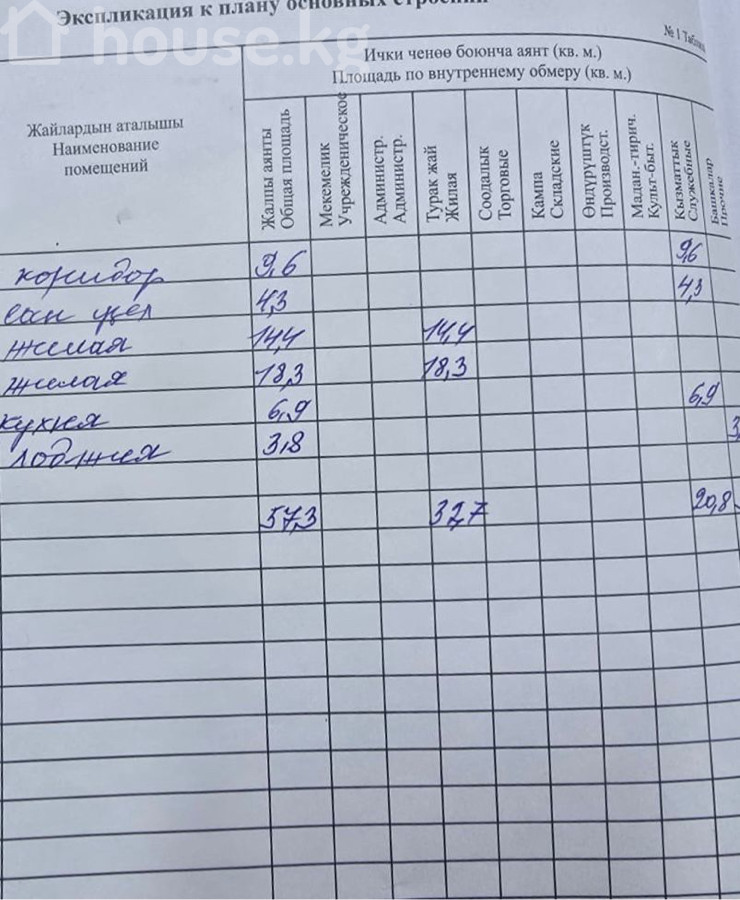 house.kg
Экспликация к плану основных строений
№ 1 Таблица
Ички ченөө боюнча аянт (кв. м.)
Площадь по внутреннему обмеру (кв. м.)
Жайлардын аталышы
Наименование
помещений
Жалпы аянты
Общая площадь
Мекемелик
Учрежденическое
Администр.
Администр.
Турак жай
Жилая
Соодалык
Торговые
Кампа
Складские
Өндүрүштүк
Производст.
Мадан.-тирич.
Культ-быт.
Кызматтык
Служебные
Башкалар
Прочие
коридор 9,6 9,6
сан узел 4,3 4,3
жилая 14,4 14,4
жилая 18,3 18,3
кухня 6,9 6,9
лоджия 3,8 3
57,3 32,7 20,8